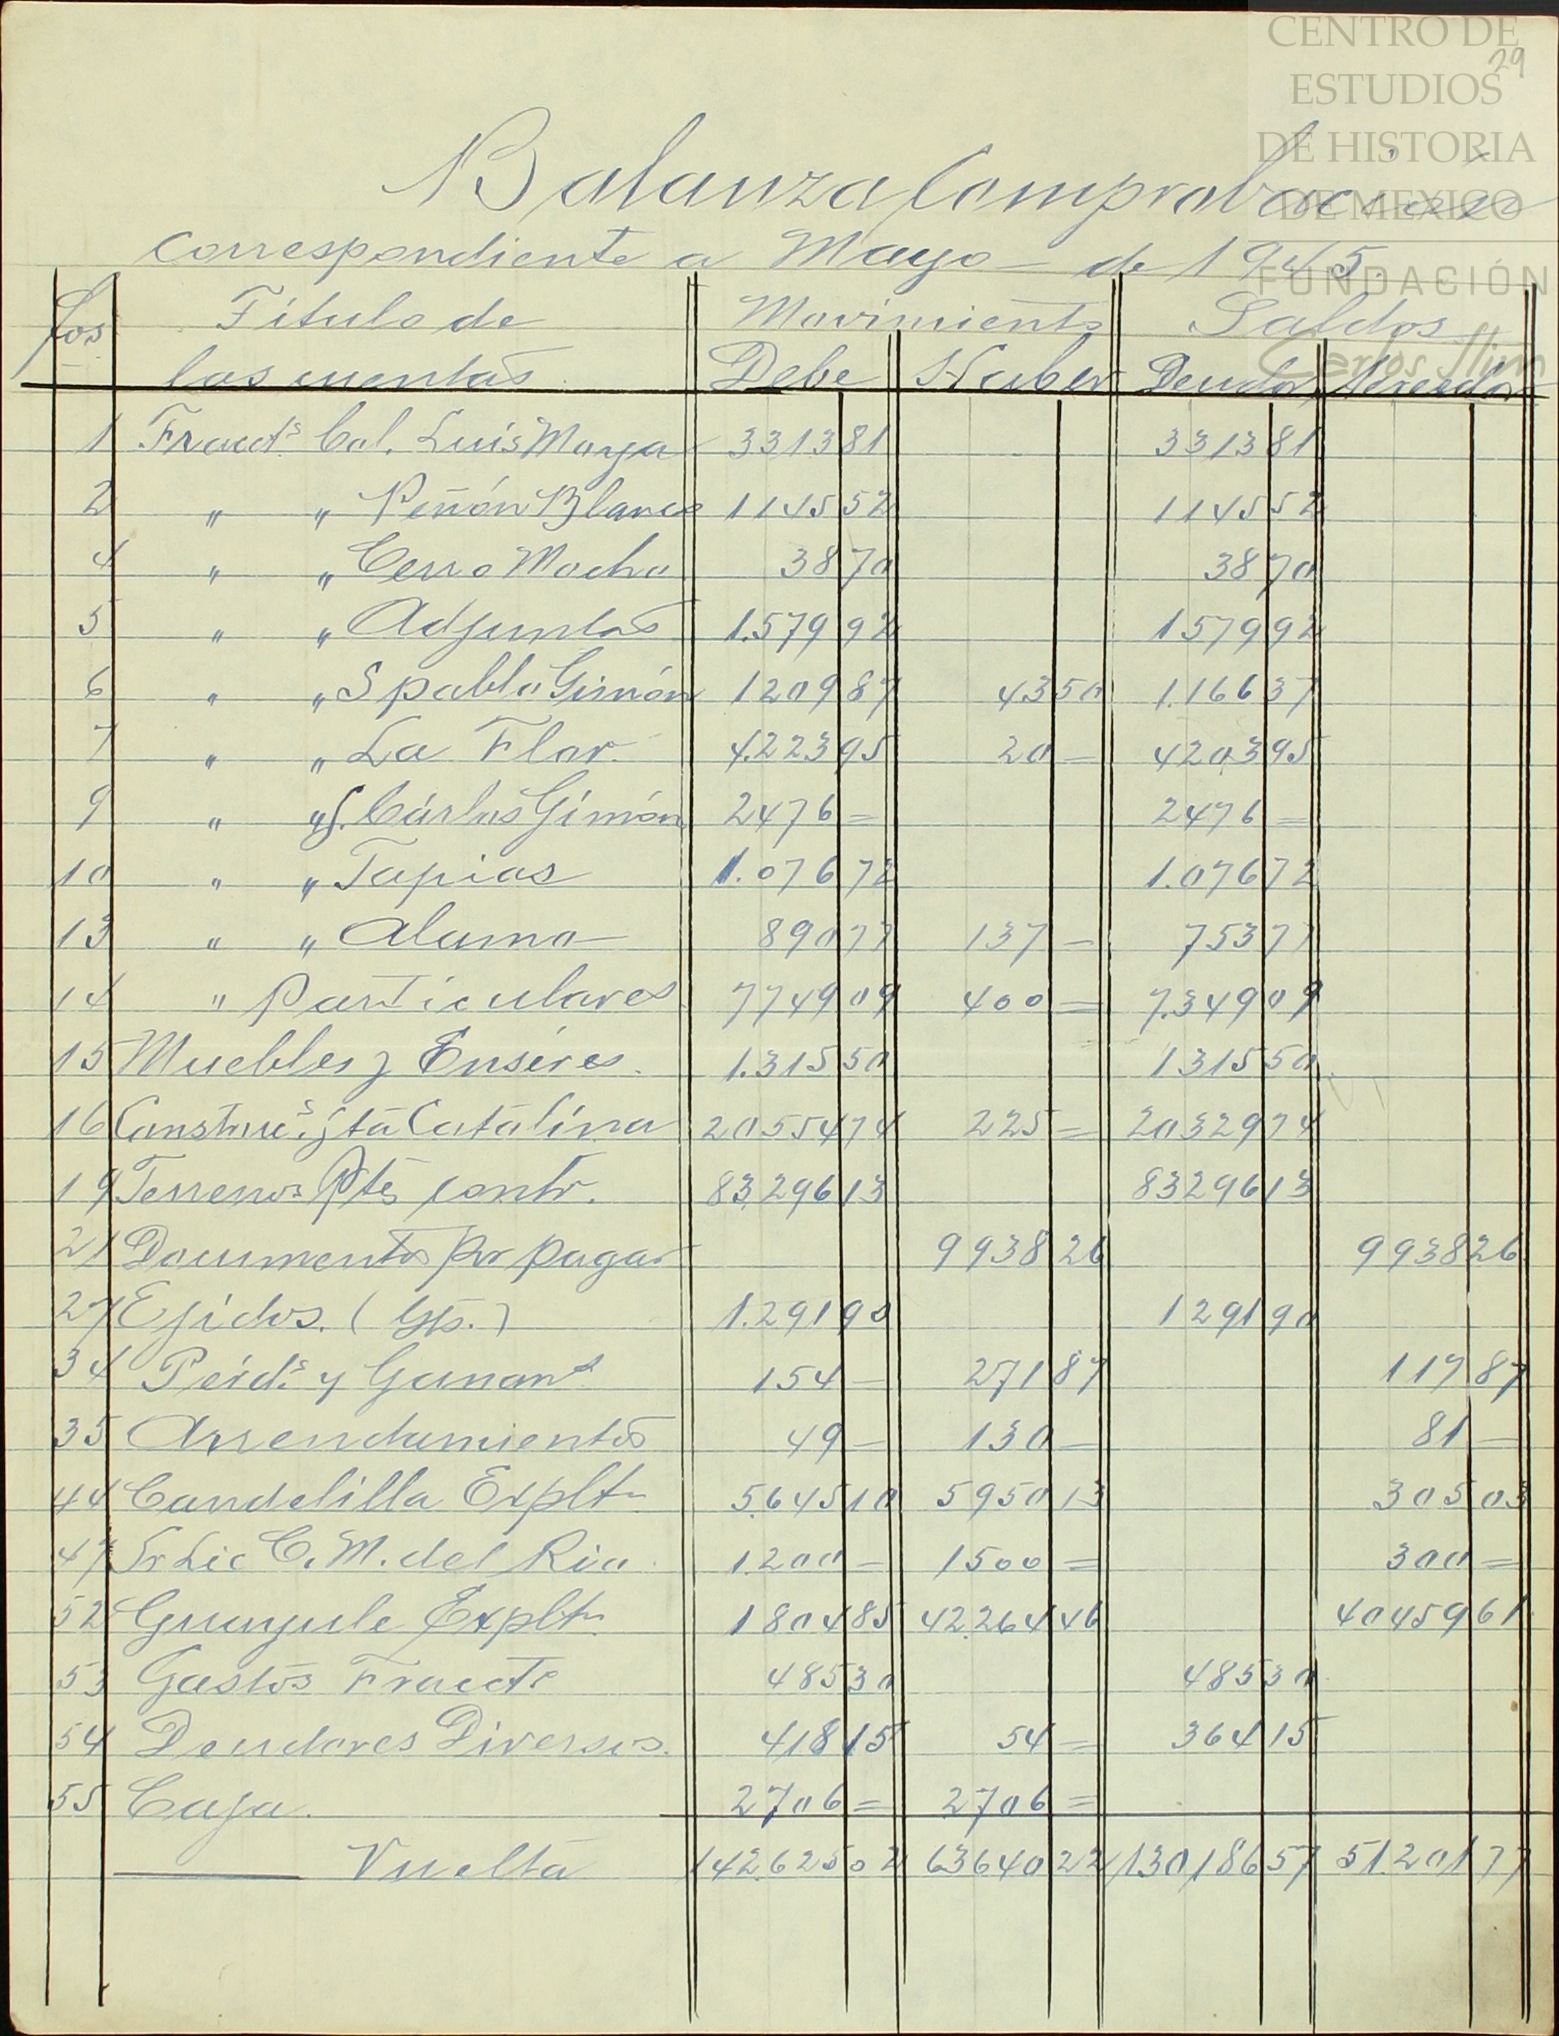 CENTRO DE
29
ESTUDIOS
DE HISTORIA
DE MÉXICO
FUNDACIÓN
Carlos Slim
Balanza Comprobación
correspondiente a Mayo — de 1945.
fos Título de Movimiento Saldos
las cuentas. Debe Haber Deudor Acreedor
1 Fracts. Col. Luis Moya 3313 81 3313 81
2 " " Peñón Blanco 1145 52 1145 52
4 " " Cerro Mocho 38 70 38 70
5 " " Adjuntas 1.579 92 1579 92
6 " " S pablo Gimón 1209 87 43 50 1.166 37
7 " " La Flor. 4.223 95 20 — 4203 95
9 " " S. Cárlos Gimón 2476 = 2476 =
10 " " Tapias 1.076 72 1.076 72
13 " " Alamo 890 77 137 — 753 77
14 " Particulares 7749 09 400 = 7.349 09
15 Muebles y Enséres. 1.315 50 1315 50
16 Construcs. Sta Catalina 20554 74 225 = 20329 74
19 Terrenos Pts contr. 83.296 13 83296 13
21 Documentos por pagar 9938 26 9938 26
27 Ejidos. (Gts.) 1.291 90 1291 90
34 Pérds. y Ganans 154 — 271 87 117 87
35 Arrendamientos 49 — 130 — 81 —
44 Candelilla Expltn 5.645 10 5950 13 305 03
47 Sr Lic C. M. del Rio. 1.200 = 1500 = 300 =
52 Guayule Expltn. 1804 85 42.264 46 40459 61
53 Gastos Fracts 485 30 485 30
54 Deudores Diversos. 418 15 54 = 364 15
55 Caja. 2706 = 2706 =
— Vuelta 142.625 02 63640 22 130186 57 51.201 77